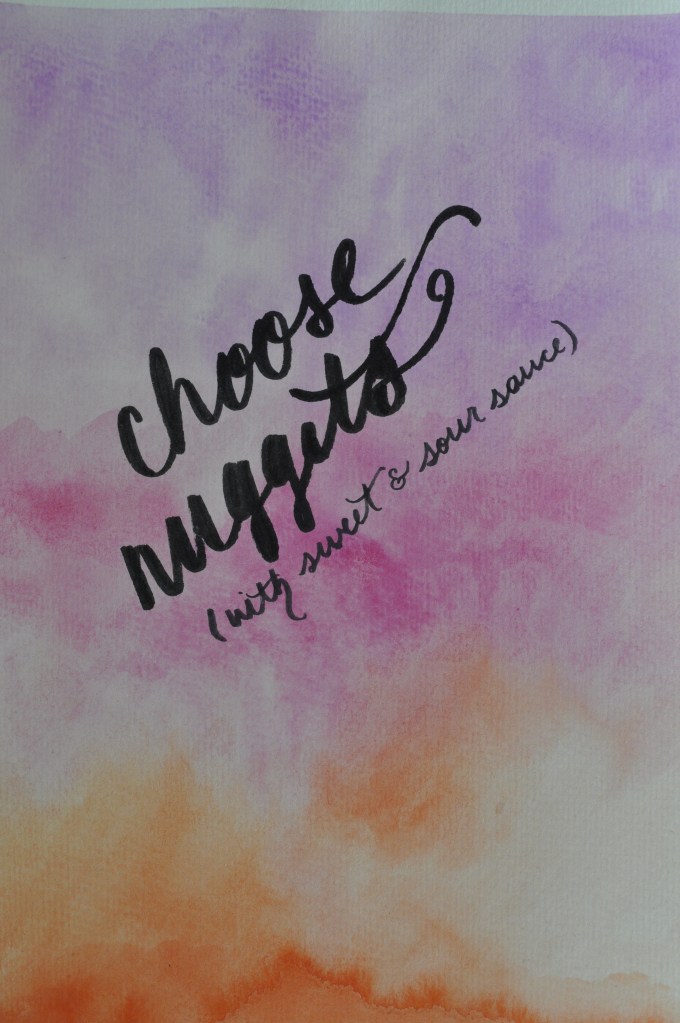 choose
nuggits
(with sweet & sour sauce)